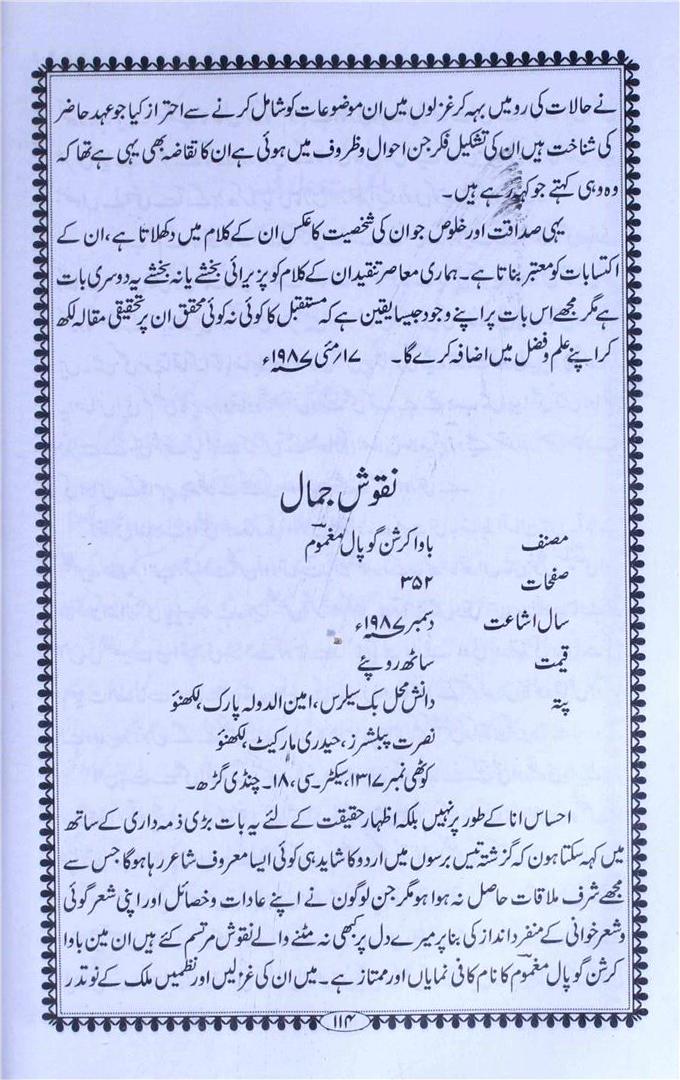 نے حالات کی رو میں بہہ کر غزلوں میں ان موضوعات کو شامل کرنے سے احتراز کیا جو عہد حاضر
کی شناخت ہیں ان کی تشکیل فکر جن احوال و ظروف میں ہوئی ہے ان کا تقاضہ بھی یہی ہے تھا کہ
وہ وہی کہتے جو کہہ رہے ہیں۔
یہی صداقت اور خلوص جو ان کی شخصیت کا عکس ان کے کلام میں دکھلاتا ہے، ان کے
اکتسابات کو معتبر بناتا ہے۔ ہماری معاصر تنقید ان کے کلام کو پزیرائی بخشے یا نہ بخشے یہ دوسری بات
ہے مگر مجھے اس بات پر اپنے وجود جیسا یقین ہے کہ مستقبل کا کوئی نہ کوئی محقق ان پر تحقیقی مقالہ لکھ
کر اپنے علم و فضل میں اضافہ کرے گا۔ ۱۷؍ مئی ۱۹۸۷ء
نقوش جمال
مصنف باوا کرشن گوپال مغموم
صفحات ۳۵۲
سال اشاعت دسمبر ۱۹۸۷ء
قیمت ساٹھ روپئے
پتہ دانش محل بک سیلرس، امین الدولہ پارک، لکھنؤ
نصرت پبلشرز، حیدری مارکیٹ، لکھنؤ
کوٹھی نمبر ۱۳۱۷، سیکٹر۔سی، ۱۸۔ چنڈی گڑھ۔
احساس انا کے طور پر نہیں بلکہ اظہار حقیقت کے لئے یہ بات بڑی ذمہ داری کے ساتھ
میں کہہ سکتا ہون کہ گزشتہ تیس برسوں میں اردو کا شاید ہی کوئی ایسا معروف شاعر رہا ہوگا جس سے
مجھے شرف ملاقات حاصل نہ ہوا ہو مگر جن لوگون نے اپنے عادات و خصائل اور اپنی شعر گوئی
و شعر خوانی کے منفرد انداز کی بنا پر میرے دل پر کبھی نہ مٹنے والے نقوش مرتسم کئے ہیں ان مین باوا
کرشن گوپال مغموم کا نام کافی نمایاں اور ممتاز ہے۔ میں ان کی غزلیں اور نظمیں ملک کے نوتدر
۱۱۴